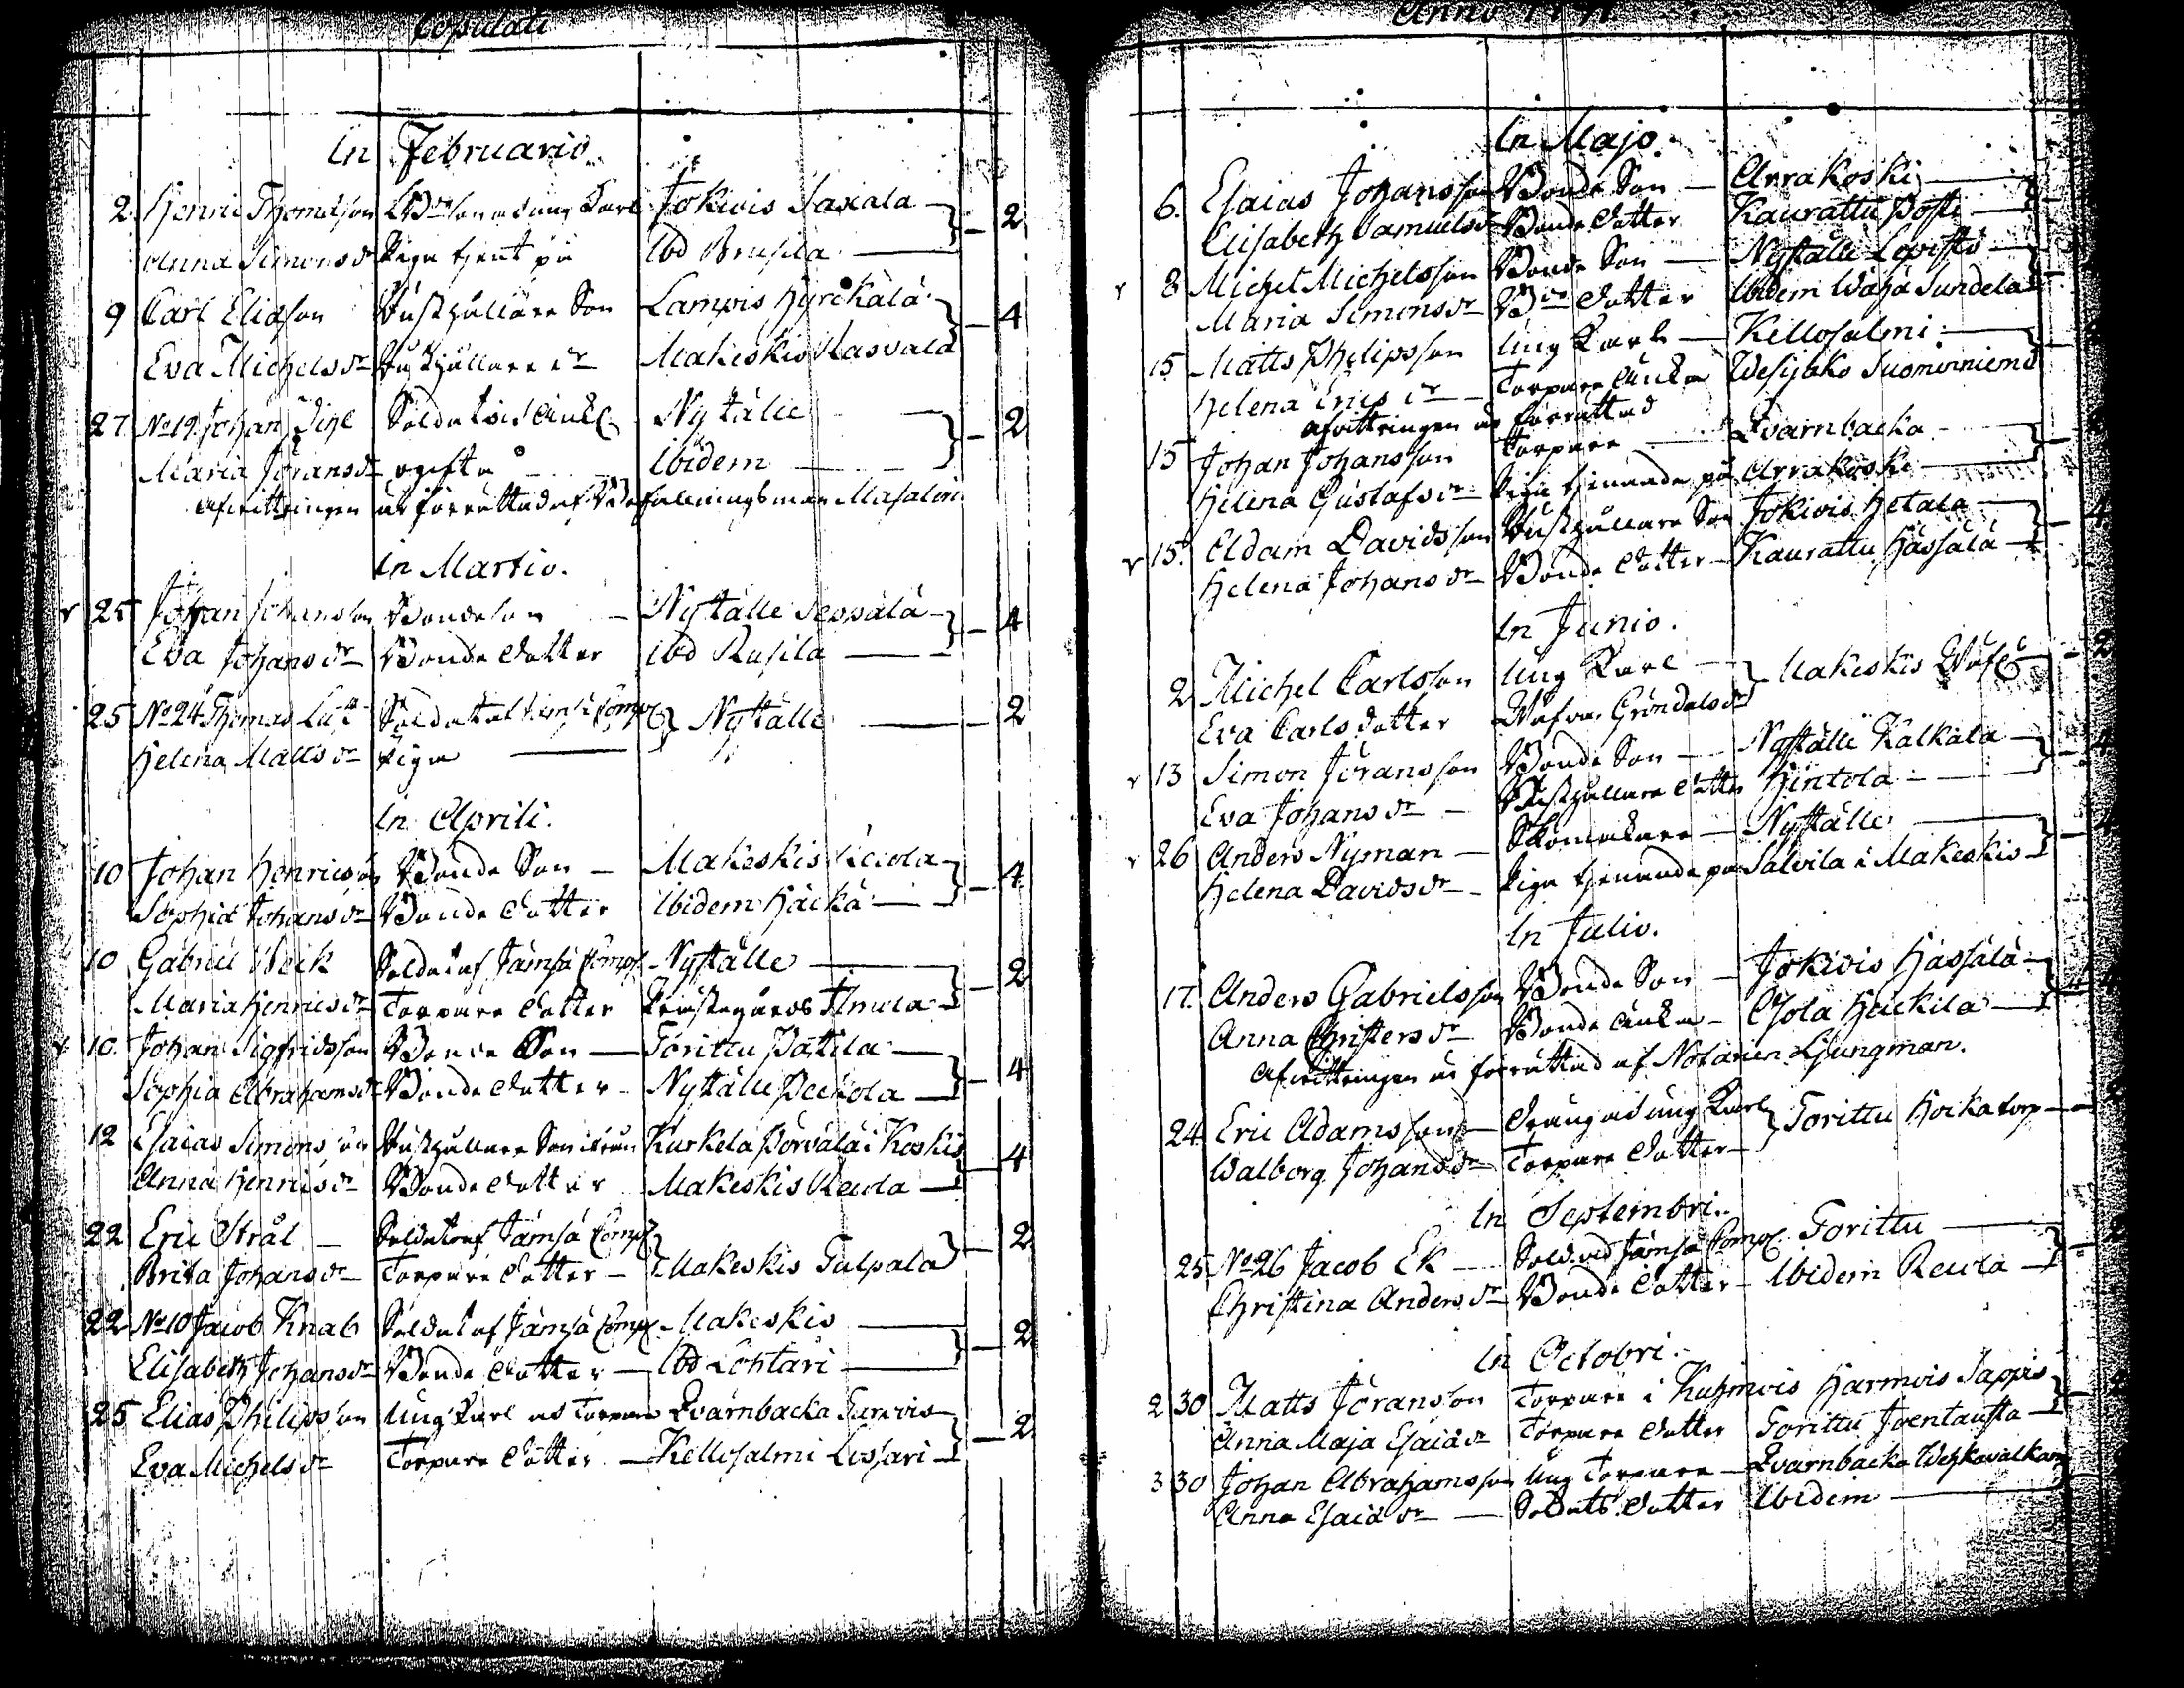 Copulati
In Februario
2 Henric Thomasson Jokivis Saxala 2
Anna Simonsdr Piga tjent på Ibd Brusila
9 Carl Eliason Rusthållare Son Lamvis Hyrckälä 4
Eva Michelsdr Rusthållare dr Makeskis Rasvala
27 No 19 Johan Nyttälle 2
Maria Joransdr ogifta Ibidem
Afvittringen är förrättad af
In Martio.
25 Johan Johansson Bondeson Nyttälle Seppälä 4
Eva Johansdr Bonde dotter Ibd Rusila
25 No 24 Thomas Soldat Nyttälle 2
Helena Mattsdr Piga
In Aprili.
10 Johan Henricsson Bonde Son Makeskis 4
Sophia Johansdr Bonde dotter Ibidem Häckä
10 Gabriel Soldat af Jämsä Comp. Nyttälle 2
Maria Henricsdr Torpare dotter
10. Johan Sigfridsson Bonde Son Torittu Pätilä 4
Sophia Abrahamsdr Bonde dotter Nyttälle Peckola
12 Esaias Simonsson Rusthållare Son ifrån Kurkela Porvala i Koskis 4
Anna Henricsdr Bonde dotter Makeskis
22 Eric Strål Soldat af Jämsä Comp. 2
Brita Johansdr Torpare dotter Makeskis Tulpala
22 No 10 Jacob Knab Soldat af Jämsä Comp. Makeskis 2
Elisabeth Johansdr Bonde dotter Ibd Lohtari
25 Elias Philipsson Ung Karl Torpare Qvarnbacka 2
Eva Michelsdr Torpare dotter Kellosalmi Lessari
Anno
In Majo.
6. Esaias Johansson Bonde Son Arrakoski
Elisabeth Samuelsdr Bonde dotter Kaurattu Posti
8 Michel Michelsson Bonde Son Nyttälle
Maria Simonsdr Bde dotter Ibidem Wähä Sundela
15 Matts Philipsson Ung Karl Kellosalmi
Helena Ericsdr Torpare Enka Wesijako Suominniemi
Afvittringen är förrättad
15 Johan Johansson Torpare Qvarnbacka
Helena Gustafsdr Piga tjenande på Arrakoski
15. Adam Davidsson Rusthållare Son Jokivis Hetala 4
Helena Johansdr Bonde dotter Kaurattu Hässälä
In Junio.
2 Michel Carlsson Ung Karl Makeskis 2
Eva Carlsdotter Gröndalsdr
13 Simon Joransson Bonde Son Nyttälle Kalkala 4
Eva Johansdr Rusthållare dotter Hintola
26 Anders Nyman Skomakare Nyttälle 4
Helena Davidsdr Piga tjenande på Salvila i Makeskis
In Julio.
17. Anders Gabrielsson Bonde Son Jokivis Hässälä 4
Anna Christersdr Bonde Enka Ohola Heickila
Afvittringen är förrättad af Notarien Ljungman.
24 Eric Adamsson Dräng ung Karl Torittu Hoikatorp
Walborg Johansdr Torpare dotter
In Septembri.
25 No 26 Jacob Ek Sold. vid Jämsä Comp. Torittu 2
Christina Andersdr Bonde dotter Ibidem Reula
In Octobri.
2 30 Matts Joransson Torpare i Kuhmois Harmois Sappis
Anna Maja Esaiædr Torpare dotter Torittu Joentausta
3 30 Johan Abrahamsson Ung Torpare Qvarnbacka
Anna Esaiædr Soldats dotter Ibidem